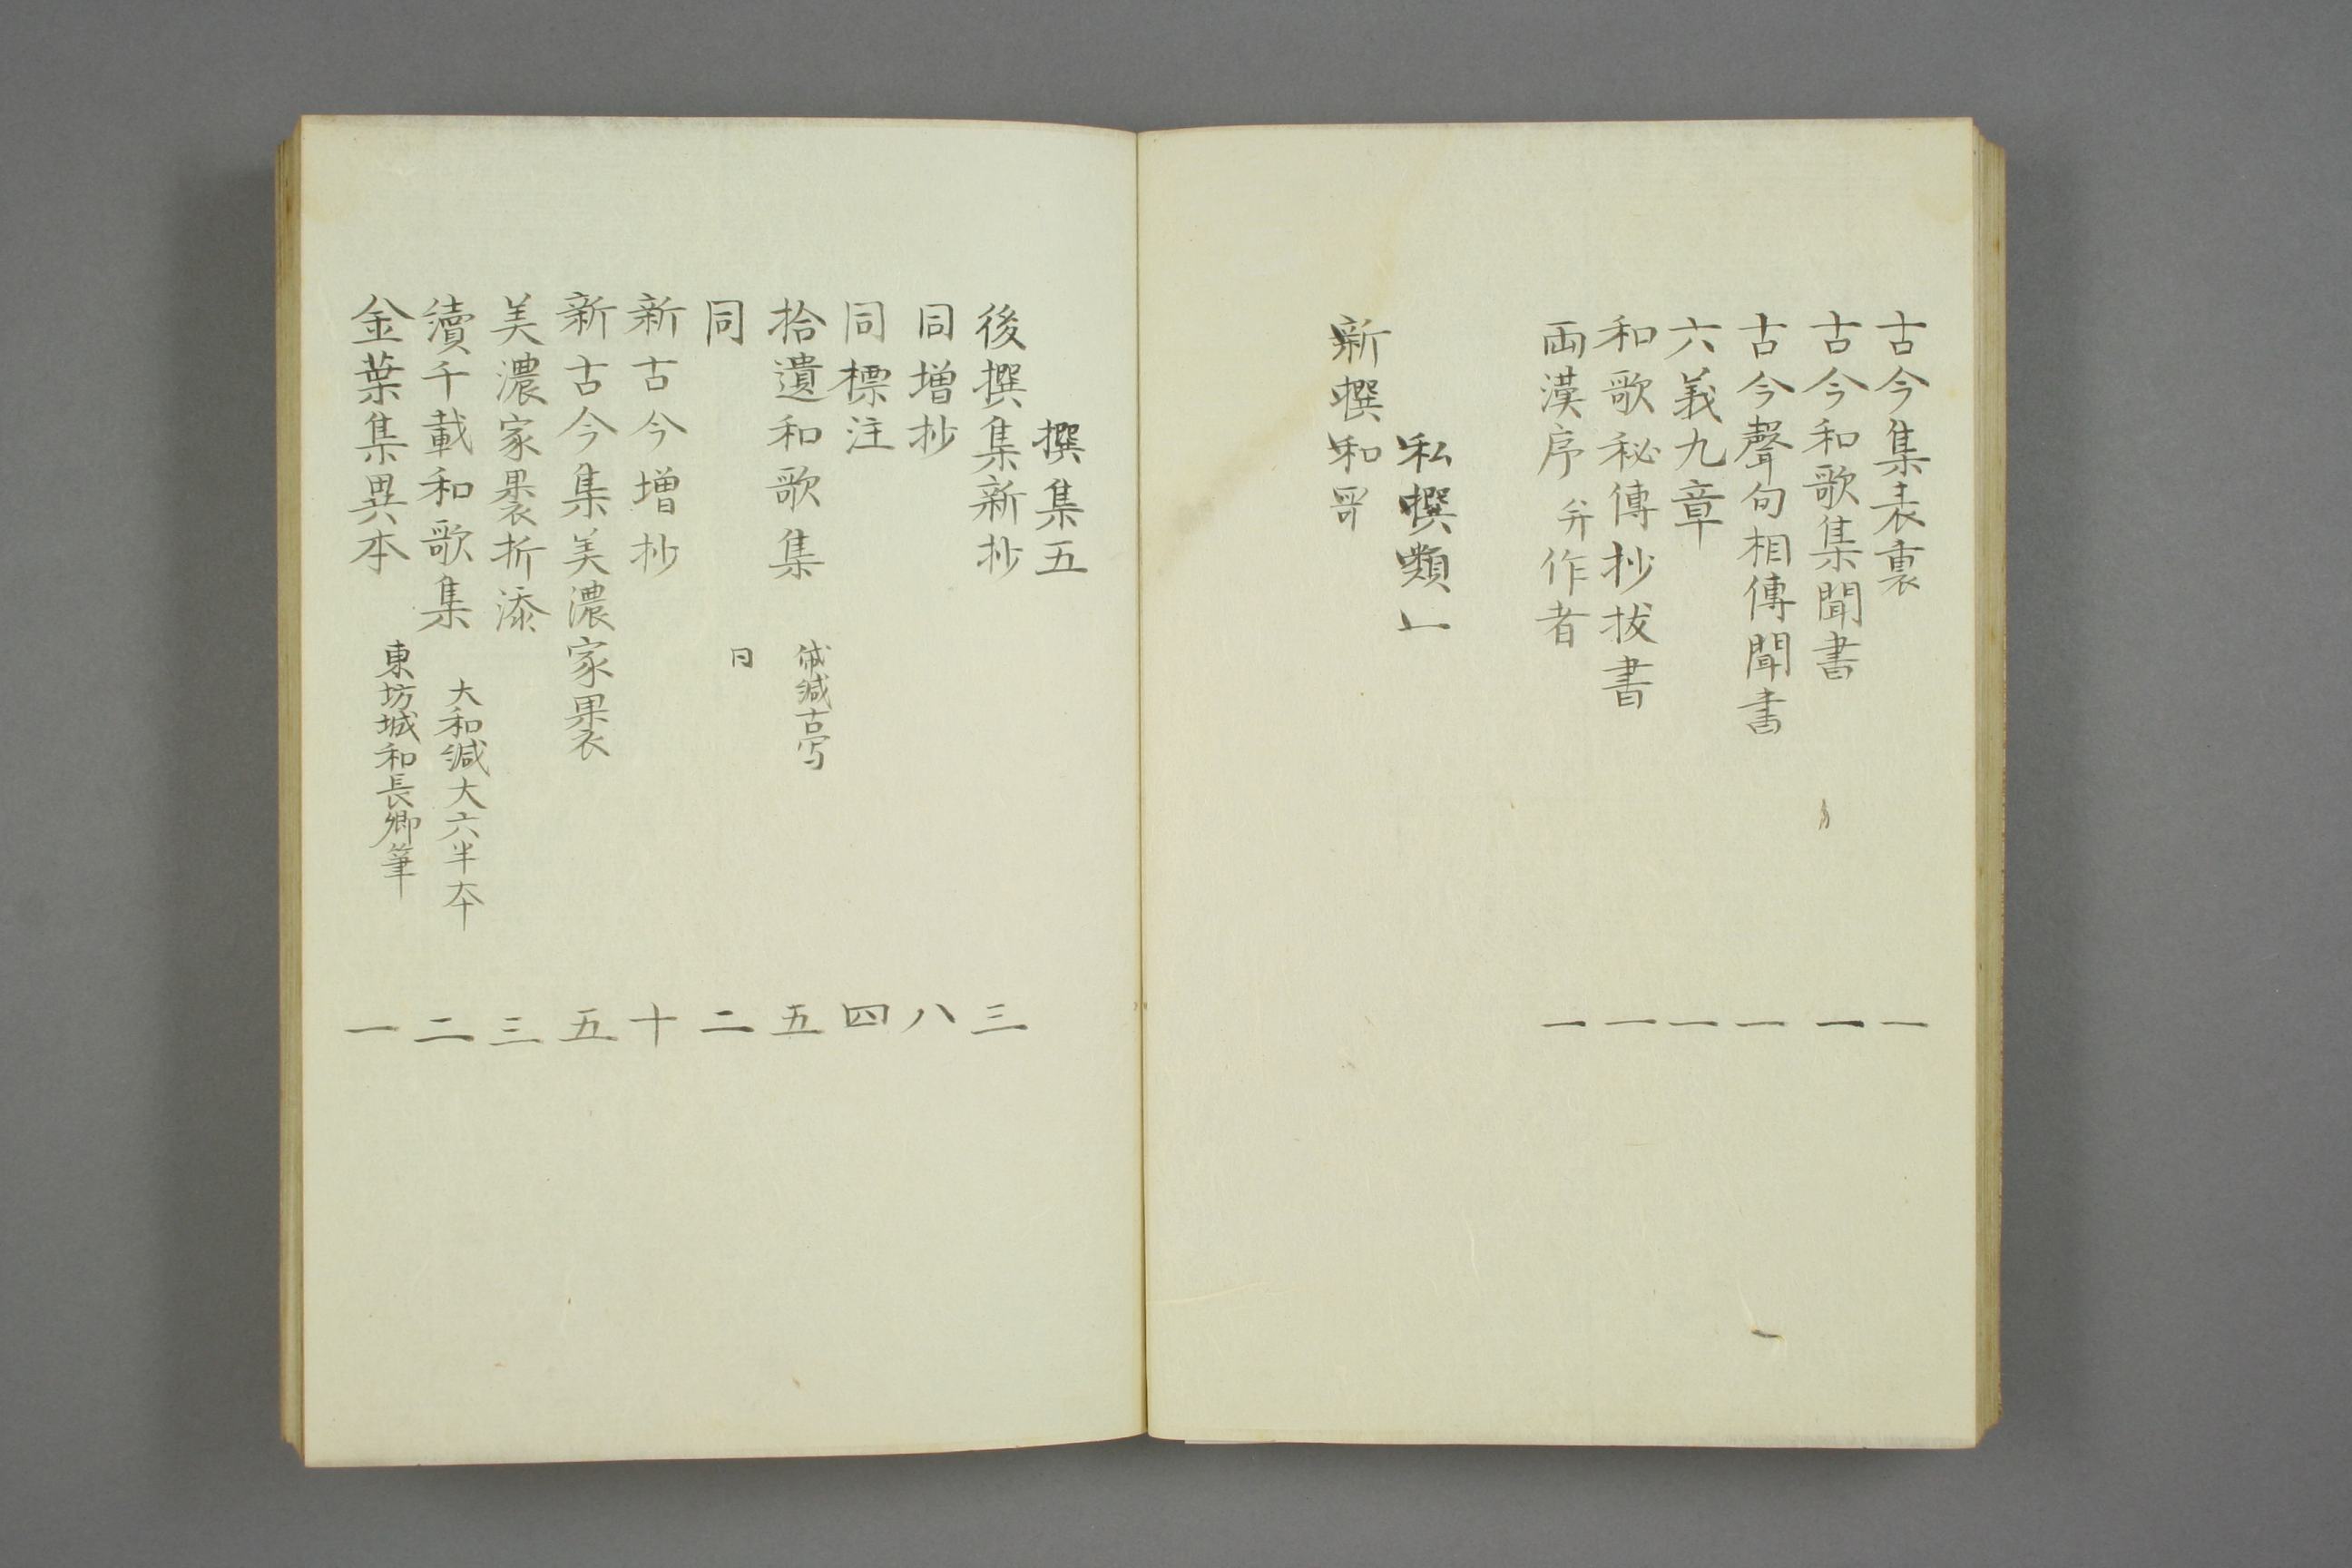 古今集表裏 一
古今和歌集聞書 一
古今聲句相傳聞書 一
六義九章 一
和歌秘傳抄拔書 一
両漢序并作者 一
私撰類一
新撰和哥
撰集五
後撰集新抄 三
同増抄 八
同標注 四
拾遺和歌集 五
同 二
新古今増抄 十
新古今集美濃家裹 五
美濃家裹折添 三
續千載和歌集 大和綴大六半本 二
金葉集異本 東坊城和長卿筆 一